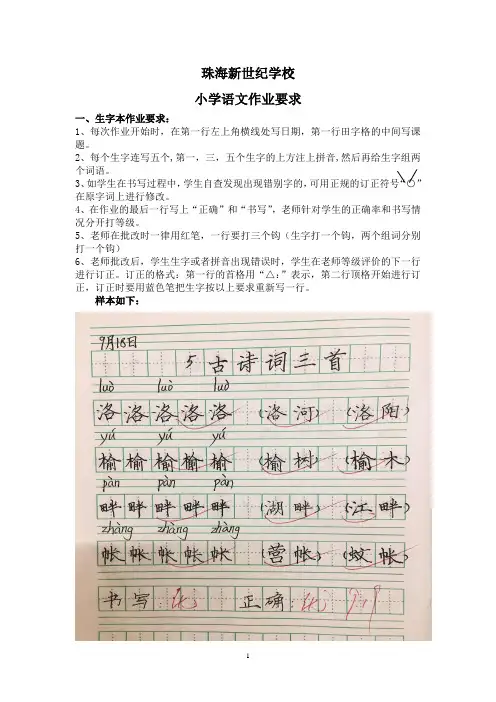 珠海新世纪学校
小学语文作业要求
一、生字本作业要求:
1、每次作业开始时，在第一行左上角横线处写日期，第一行田字格的中间写课
题。
2、每个生字连写五个,第一，三，五个生字的上方注上拼音,然后再给生字组两
个词语。
3、如学生在书写过程中,学生自查发现出现错别字的,可用正规的订正符号“○”
在原字词上进行修改。
4、在作业的最后一行写上“正确”和“书写”，老师针对学生的正确率和书写情
况分开打等级。
5、老师在批改时一律用红笔，一行要打三个钩（生字打一个钩，两个组词分别
打一个钩）
6、老师批改后，学生生字或者拼音出现错误时，学生在老师等级评价的下一行
进行订正。订正的格式：第一行的首格用“△:”表示，第二行顶格开始进行订
正，订正时要用蓝色笔把生字按以上要求重新写一行。
样本如下:
9月18日
5 古诗词三首
luò luò luò
洛洛洛洛洛 (洛河) (洛阳)
yú yú yú
榆榆榆榆榆 (榆树) (榆木)
pàn pàn pàn
畔畔畔畔畔 (湖畔) (江畔)
zhàng zhàng zhàng
帐帐帐帐帐 (营帐) (蚊帐)
书写:优 正确:优
1